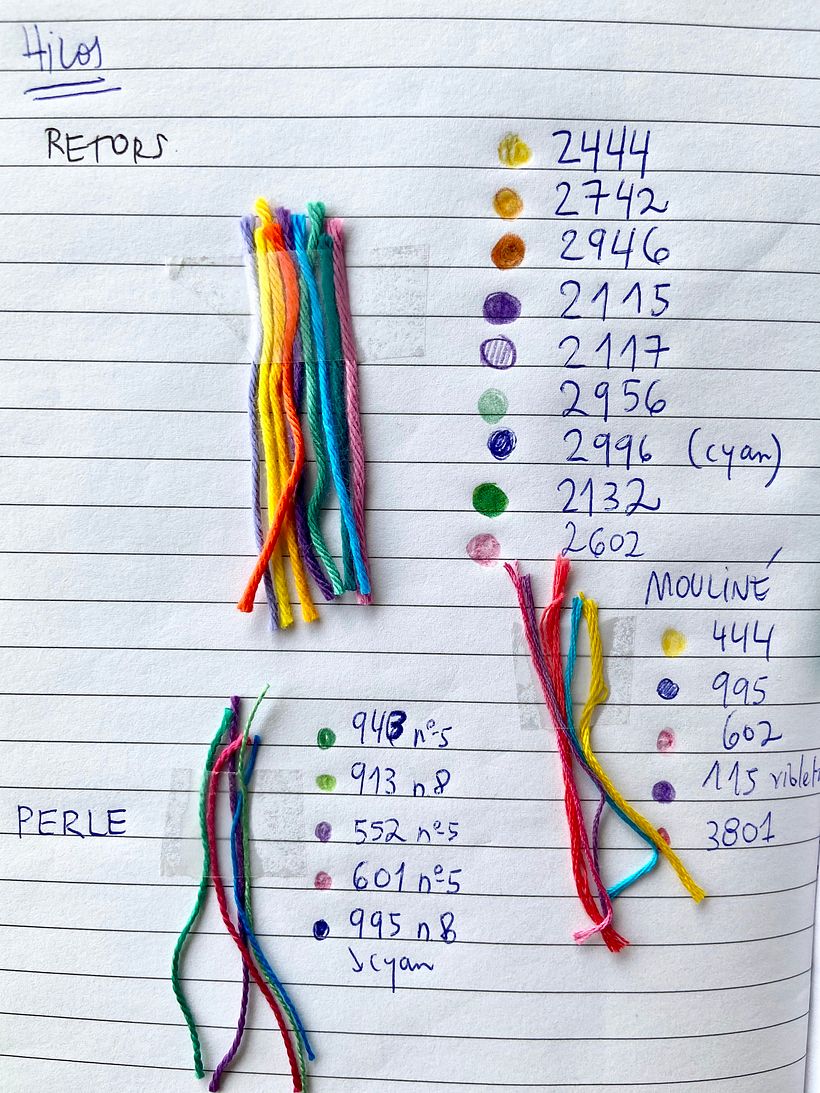 Hilos
RETORS.
2444
2742
2946
2115
2117
2956
2996 (cyan)
2132
2602
MOULINÉ
444
995
602
115 violeta
3801
PERLE
943 nº5
913 n8
552 nº5
601 nº5
995 n8
↘cyan